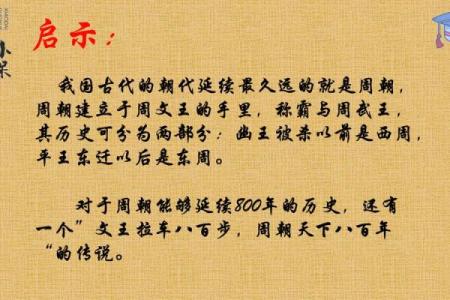 启示：
小呆
我国古代的朝代延续最久远的就是周朝，
周朝建立于周文王的手里，称霸与周武王，
其历史可分为两部分：幽王被杀以前是西周，
平王东迁以后是东周。
对于周朝能够延续800年的历史，还有
一个”文王拉车八百步，周朝天下八百年
“的传说。